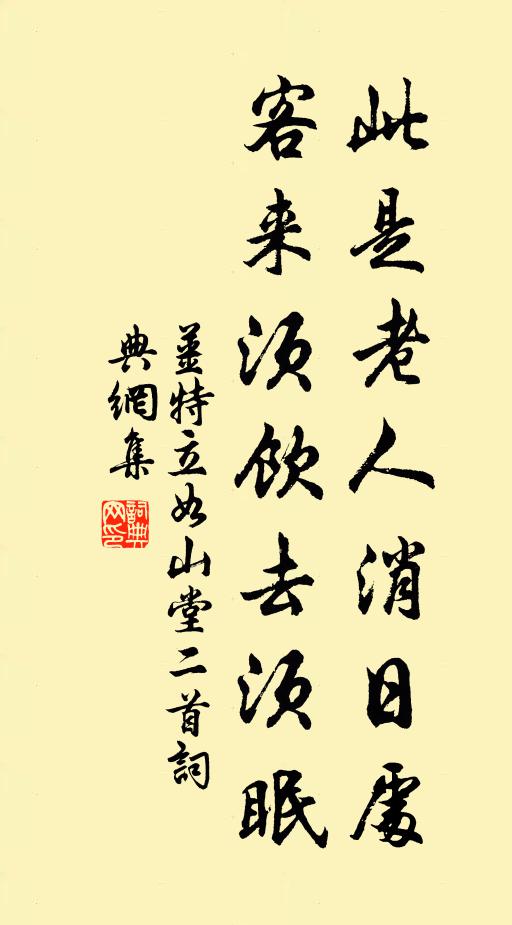 此是老人消日處
客来須飲去須眠
姜特立如山堂二首詞
典網集
詞典網印